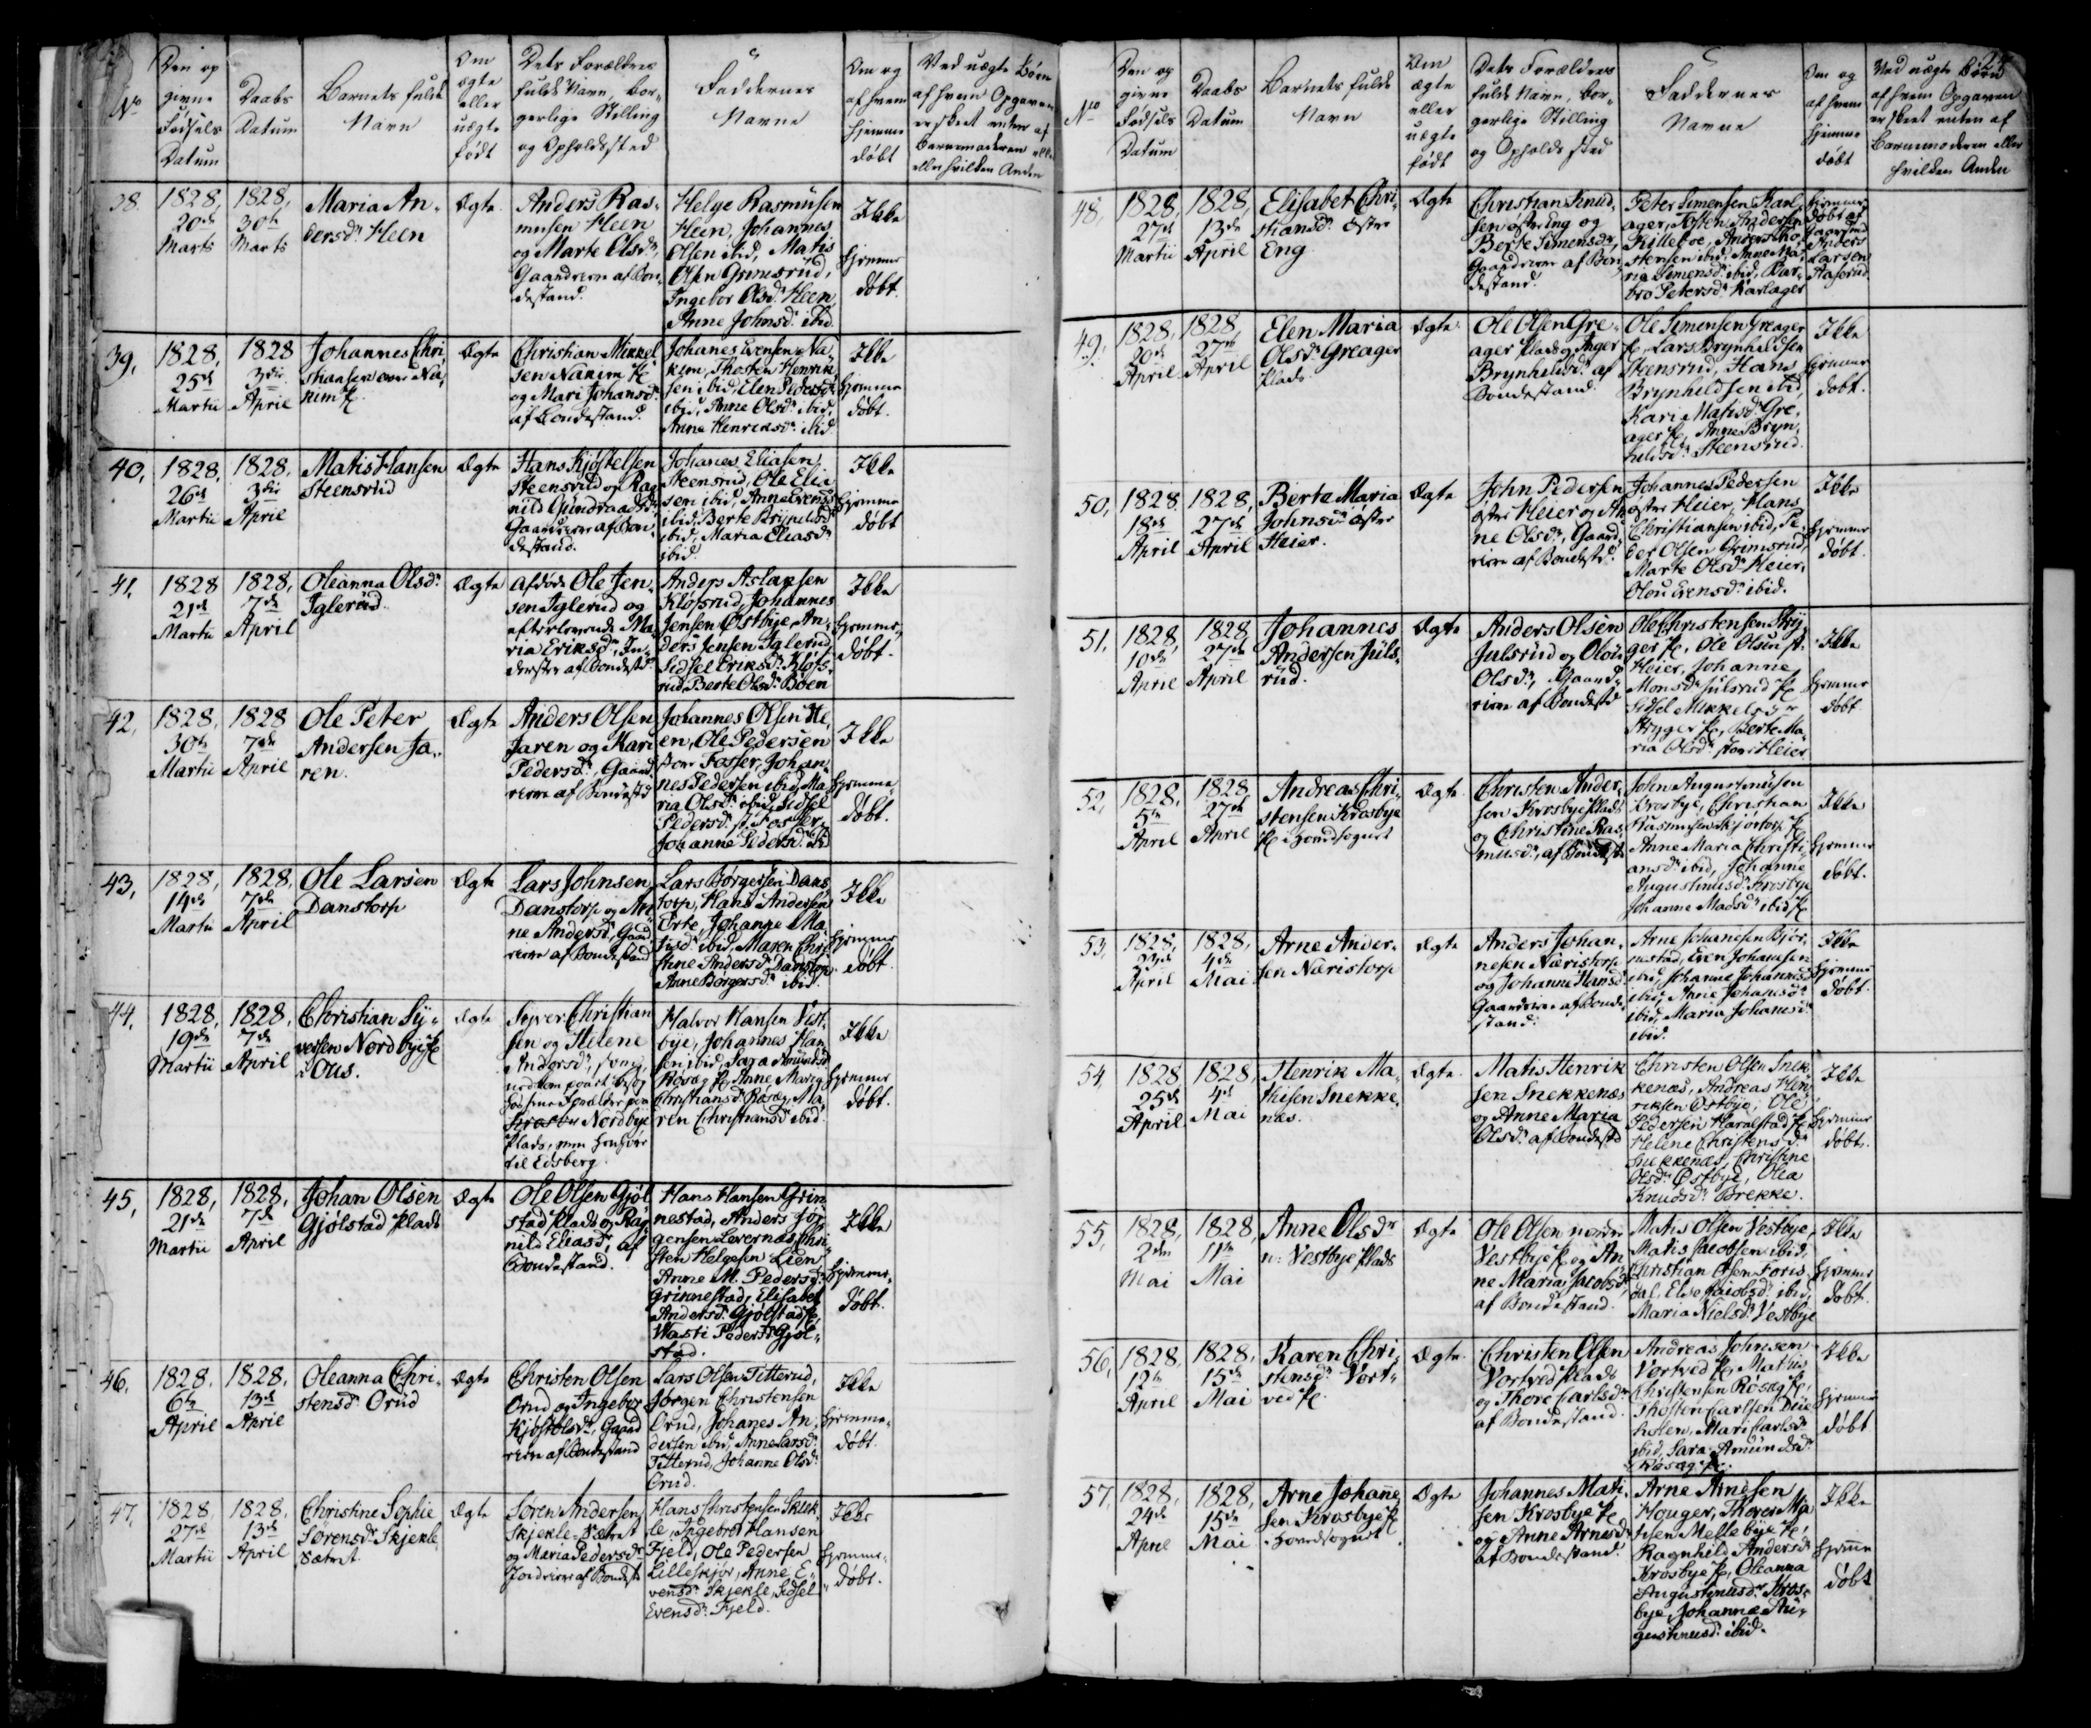 No
Den op
givne
Fødsels
Datum
Daabs
Datum
Barnets fulde
Navn
Om
ægte
eller
uægte
født
Dets Forældres
fulde Navn, bor-
gerlige Stilling
og Opholdssted
Faddernes
Navne
Om og
af hvem
hjemme
døbt
Ved uægte Børn
af hvem Opgaven
er skeet enten af
Barnemoderen eller
hvilken Anden
38.
1828,
20de
Marts
1828,
30te
Marts
Maria An-
dersdr Heen
Ægte
Anders Ras-
musen Heen
og Marte Olsdr,
Gaardeiere af Bon-
destand.
Helge Rasmusen
Heen, Johannes
Olsen ibid, Matis
Olsen Grimsrud,
Ingebor Olsdr Heen
Anne Johnsdr ibid
Ikke
hjemme
døbt.
39,
1828,
25de
Martii
1828
3die
April
Johannes Chri
stiansen
Ægte
Christian Mikkel
sen Nakim Pl
og Mari Johansdr
af Bondestand
Johanes Evensen Na-
kim, Thosten Henrik
sen ibid, Elen Pedersdr
ibid, Anne Olsdr ibid,
Anne Henriksdr ibid
Ikke
hjemme
døbt.
40,
1828,
26de
Martii
1828,
3die
April
Matis Hansen
Steensrud
Ægte
Hans Kjøstelsen
Steensrud og Rag
nild Gundraadsdr
Gaardeiere af Bon-
destand.
Johanes Eliasen
Steensrud, Ole Elia
sen ibid, Anne Evensdr
ibid, Berte Brynildsdr
ibid, Maria Eliasdr
ibid
Ikke
hjemme
døbt
41,
1828
21de
Martii
1828,
7de
April
Oleanna Olsdr
Iglerud.
Ægte
afdøde Ole Jen-
sen Iglerud og
efterlevende Ma-
ria Eriksdr, In-
derster af Bondestd
Anders Aslaksen
Kløfsrud, Johannes
Jensen Østbye, An-
ders Jensen Iglerud
Sidsel Eriksdr Kløfs-
rud, Berte Olsdr Bøen
Ikke
hjemme
døbt.
42,
1828,
30te
Martii
1828
7de
April
Ole Peter
Andersen Ja-
ren.
Ægte
Anders Olsen
Jaren og Kari
Pedersdr, Gaard
eiere af Bondestd
Johannes Olsen He
en, Ole Pedersen
store Fosser, Johan-
nes Pedersen ibid, Ma
ria Olsdr ibid, Sidsel
Pedersdr st. Fosser,
Johanne Pedersdr ibid
Ikke
hjemme
døbt.
43,
1828,
14de
Martii
1828,
7de
April
Ole Larsen
Danstorp
Ægte
Lars Johnsen
Danstorp og An
ne Andersdr, Gaard
eiere af Bondestand
Lars Børgersen Dans
torp, Hans Andersen
Ørte, Johanne Ma-
tisdr ibid, Maren Chri
stine Andersdr Danstorp,
Anne Børgersdr ibid.
Ikke
hjemme
døbt
44,
1828,
19de
Martii
1828,
7de
April
Christian Sy-
versen Nordbye Pl
i Ous.
Ægte
Syver Christian
sen og Helene
Andersdr, som
Nordbye
Plads, men henhører
til Eidsberg.
Halvor Hansen Vest-
bye, Johannes Han
sen ibid, Sara Amundsdr
Røsæg Pl, Anne Marie
Christiansdr Røsæg, Ma-
ren Christiansdr ibid
Ikke
hjemme
døbt.
45,
1828,
21de
Martii
1828,
7de
April
Johan Olsen
Gjølstad Plads
Ægte
Ole Olsen Gjøl
stad Plads og Rag
nild Eliasdr, af
Bondestand.
Hans Hansen Grim
nestad, Anders Jør
gensen Levernæs, Chri
sten Helgesen Lien,
Anne M. Pedersdr
Grimnestad, Elisabet
Andersdr Gjølstad Pl,
Marti Pedersdr Gjøl-
stad.
Ikke
hjemme
døbt.
46,
1828,
6te
April
1828,
13de
April
Oleanna Chri-
stensdr Orud
Ægte
Christen Olsen
Orud og Ingebor
Kjøstelsdr, Gaard
eiere af Bondestand
Lars Olsen Titterud,
Jørgen Christensen
Orud, Johanes An
dersen ibid, Anne Larsdr
Titterud, Johanne Olsdr
Orud.
Ikke
hjemme
døbt.
47,
1828,
27de
Martii
1828,
13de
April
Christine Sophie
Sørensdr Skjekle
Sætret.
Ægte
Søren Andersen
Skjekle Sætret
og Maria Pedersdr
Jordeiere af Bondestd
Hans Christensen Skiek
le, Ingebret Hansen
Fjeld, Ole Pedersen
Lilleskjør, Anne E-
vensdr Skjekle, Sidsel
Evensdr Fjeld.
Ikke
hjemme
døbt.
No
Den op
givne
Fødsels
Datum
Daabs
Datum
Barnets fulde
Navn
Om
ægte
eller
uægte
født
Dets Forældres
fulde Navn, bor-
gerlige Stilling
og Opholdssted
Faddernes
Navne
Om og
af hvem
hjemme
døbt
Ved uægte Børn
af hvem Opgaven
er skeet enten af
Barnemoderen eller
hvilken Anden
48,
1828,
27de
Martii
1828,
13de
April
Elisabet Chri-
stiansdr østre
Eng
Ægte
Christian Knud-
sen østre Eng og
Berte Simensdr,
Gaardeiere af Bon-
destand.
Peter Simensen Karl
ager, Tosten Andersen
Killeboe, Anders Tho
stensen ibid, Anne Ma-
ria Simensdr ibid, Bar-
bro Petersdr Karlager
hjemme-
døbt af
Gaardmd
Anders
Larsen
Haserud
49,
1828,
20de
April
1828,
27de
April
Elen Maria
Olsdr Greager
Plads
Ægte
Ole Olsen Gre-
ager Plads og Inger
Brynhildsdr af
Bondestand.
Ole Simensen Greager
Pl, Lars Brynhildsen
Steensrud, Hans
Brynhildsen ibid,
Kari Matisdr Gre-
ager Pl, Anne Bryn-
hildsdr Steensrud.
Ikke
hjemme
døbt.
50,
1828,
18de
April
1828,
27de
April
Berte Maria
Johnsdr østre
Heier.
Ægte
John Pedersen
østre Heier og An
ne Olsdr, Gaard-
eiere af Bondestd
Johannes Pedersen
østre Heier, Hans
Christiansen ibid, Pe-
der Olsen Grimsrud,
Marte Olsdr Heier,
Olou Evensdr ibid.
Ikke
hjemme
døbt.
51,
1828,
10de
April
1828,
27de
April
Johannes
Andersen Juls-
rud.
Ægte
Anders Olsen
Julsrud og Olou
Olsdr, Gaard-
eiere af Bondestd
Ole Christensen Stry
ger Pl, Ole Olsen st.
Heier, Johanne
Monsdr Julsrud Pl
Sidsel Mikkelsdr
Stryger Pl, Berte Ma
ria Olsdr store Heier
Ikke
hjemme
døbt
52,
1828,
5te
April
1828,
27de
April
Andreas Chri-
stensen Krosbye
Pl i Hovedsognet
Ægte
Christen Ander-
sen Krosbye Plads
og Christine Ras-
musdr, af Bondestd
John Augustinusen
Krosbye, Christian
Rasmusen Skjørtorp Pl
Anne Maria Christi
ansdr ibid, Johanne
Augustinusdr Krosbye
Johanne Madsdr ibid Pl
Ikke
hjemme
døbt.
53,
1828,
April
1828,
4de
Mai
Arne Ander-
sen Næristorp
Ægte
Anders Johan-
nesen Næristorp
og Johanne Hansdr
Gaardeiere af Bonde-
stand.
Arne Johanesen Bjør-
nestad, Even Johansen
ibid, Johanne Johannesdr
ibid, Anne Johansdr
ibid, Maria Johansdr
ibid.
Ikke
hjemme
døbt.
54,
1828
25de
April
1828,
4de
Mai
Henrik Ma-
thisen Snekke-
næs.
Ægte.
Matis Henrik
sen Snekkenæs
og Anne Maria
Olsdr af Bondestd
Christen Olsen Snek-
kenæs, Andreas Hen
riksen Østbye, Ole
Pedersen Haralstad Pl
Helene Christensdr
Snekkenæs, Christine
Olsdr Østbye, Olea
Knudsdr Brekke.
Ikke
hjemme
døbt.
55,
1828,
2den
Mai
1828,
11te
Mai
Anne Olsdr
n: Vestbye Plads
Ægte
Ole Olsen nordre
Vestbye Pl og An
ne Maria Jacobsdr
af Bondestand.
Matis Olsen Vestbye,
Matis Jacobsen ibid,
Christian Olsen Foris
dal, Else Jacobsdr ibid,
Maria Nielsdr Vestbye
Ikke
hjemme
døbt.
56,
1828,
12te
April
1828,
15de
Mai
Karen Chri-
stensdr Vort-
ved Pl.
Ægte.
Christen Olsen
Vortved Plads
og Thore Carlsdr
af Bondestand.
Andreas Johnsen
Vortved Pl, Mathis
Christensen Røsæg Pl,
Thosten Carlsen Due
holen, Mari Carlsdr
ibid, Sara Amundsdr
Røsæg Pl.
Ikke
hjemme
døbt
57,
1828,
24de
April
1828,
15de
Mai
Arne Johane
sen Krosbye Pl
i Hovedsognet
Ægte
Johannes Mati-
sen Krosbye Pl
og Anne Arnesdr
af Bondestand.
Arne Arnesen
Houger, Thorer Ma
tisen Mellebye Pl,
Ragnhild Andersdr
Krosbye Pl, Oleanna
Augustinusdr Kros-
bye, Johanne Au-
gustinusdr ibid.
Ikke
hjemme
døbt